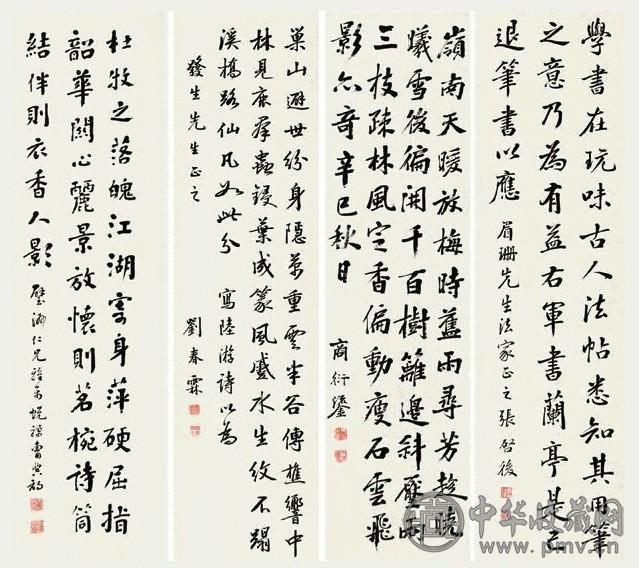 學書在玩味古人法帖悉知其用筆
之意乃為有益右軍書蘭亭是已
退筆書以應 眉珊先生法家正之 張啓後
嶺南天暖放梅時舊雨尋芳趁曉
曦雪後徧開千百樹籬邊斜壓兩
三枝疎林風定香偏動瘦石雲飛
影亦奇辛巳秋日 商衍鎏
巢山避世紛身隱萬重雲半谷傳樵響中
林見鹿羣蟲鏤葉成篆風蹙水生紋不蹋
溪橋路仙凡如此分 寫陸游詩以為
發生先生正之 劉春霖
杜牧之落魄江湖寄身萍硬屈指
韶華關心麗景放懷則茗椀詩筒
結伴則衣香人影 仁兄雅 曹典初
中华收藏网
www.pmv.cn